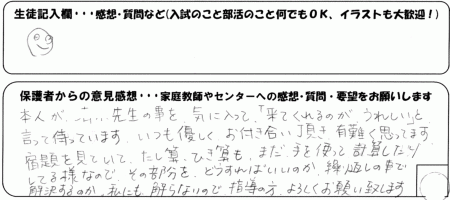 生徒記入欄・・・感想・質問など(入試のこと部活のこと何でもOK、イラストも大歓迎!)
保護者からの意見感想・・・家庭教師やセンターへの感想・質問・要望をお願いします
本人が、 先生の事を、気に入って、「来てくれるのが、うれしい」と
言って待っています。いつも優しく お付き合い頂き 有難く思ってます。
宿題を見ていて、たし算、ひき算も、まだ、手を使って計算したり
してる様なので、その部分を、どうすればいいのか、繰返しの事で
解決するのか、私にも 解らないので 指導の方、よろしくお願い致します